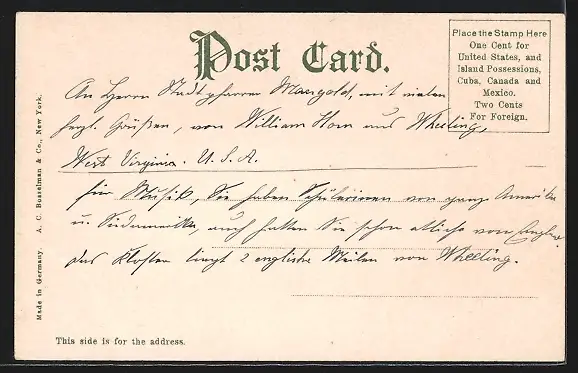 Post Card.
Place the Stamp Here
One Cent for
United States, and
Island Possessions,
Cuba, Canada and
Mexico.
Two Cents
For Foreign.
An Herrn Stadtpfarrer Mangold, mit vielen
herzl. Grüßen, von William Horn aus Wheeling,
West Virginia. U. S. A.
für Musik, Sie haben Schülerinen von ganz Amerika
u. Südamerika, auch hatten Sie schon etliche von England.
das Kloster liegt 2 englische Meilen von Wheeling.
Made in Germany. A. C. Bosselman & Co., New York.
This side is for the address.